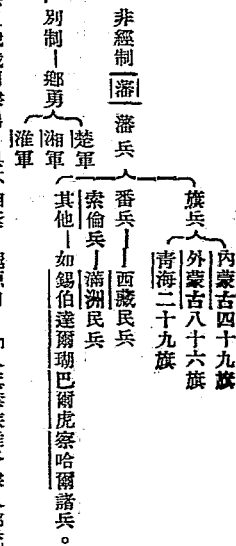 非經制
藩
藩兵
旗兵
內蒙古四十九旗
外蒙古八十六旗
青海二十九旗
番兵——西藏民兵
索倫兵—滿洲民兵
其他—如錫伯達爾瑚巴爾虎察哈爾諸兵。
別制—鄉勇
楚軍
湘軍
淮軍